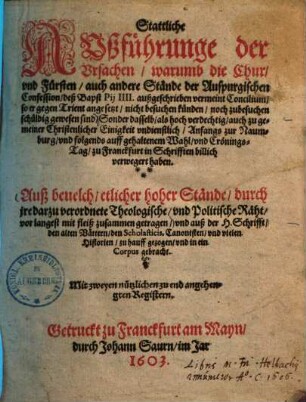 Stattliche
Außführunge der
Vrsachen / warumb die Chur /
vnd Fürsten / auch andere Stände der Außpurgischen
Confession / deß Bapst Pij IIII. außgeschrieben vermeint Concilium /
so er gegen Trient angesetzt / nicht besuchen künden / noch zubesuchen
schüldig gewesen sind / Sonder dasselb / als hoch verdechtig / auch zu ge-
meiner Christenlicher Einigkeit vndienstlich / Anfangs zur Naum-
burg / vnd folgends auff gehaltenem Wahl / vnd Crönungs-
Tag / zu Franckfurt in Schrifften billich
verwegert haben.
Auß beuelch / etlicher hoher Stände / durch
jre darzu verordnete Theologische / vnd Politische Räht /
vor langest mit fleiß zusammen getragen / vnd auß der H. Schrifft /
den alten Vättern / den Scholasticis, Canonisten / vnd vielen
Historien / zu hauff gezogen / vnd in ein
Corpus gebracht.
Mit zweyen nützlichen zu end angeheng-
ten Registern.
Getruckt zu Franckfurt am Mayn /
durch Johann Saurn / im Jar
1603.